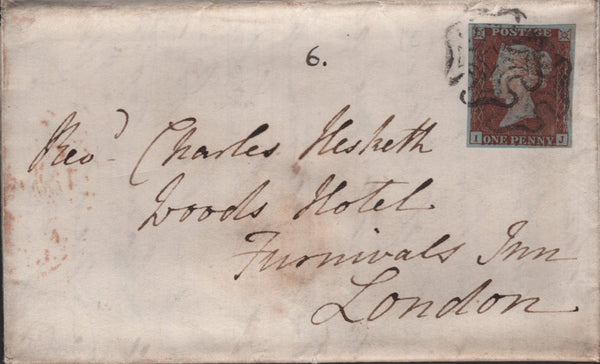 POSTAGE
6.
I ONE PENNY J
Revd Charles Hesketh
Woods Hotel
Furnivals Inn
London